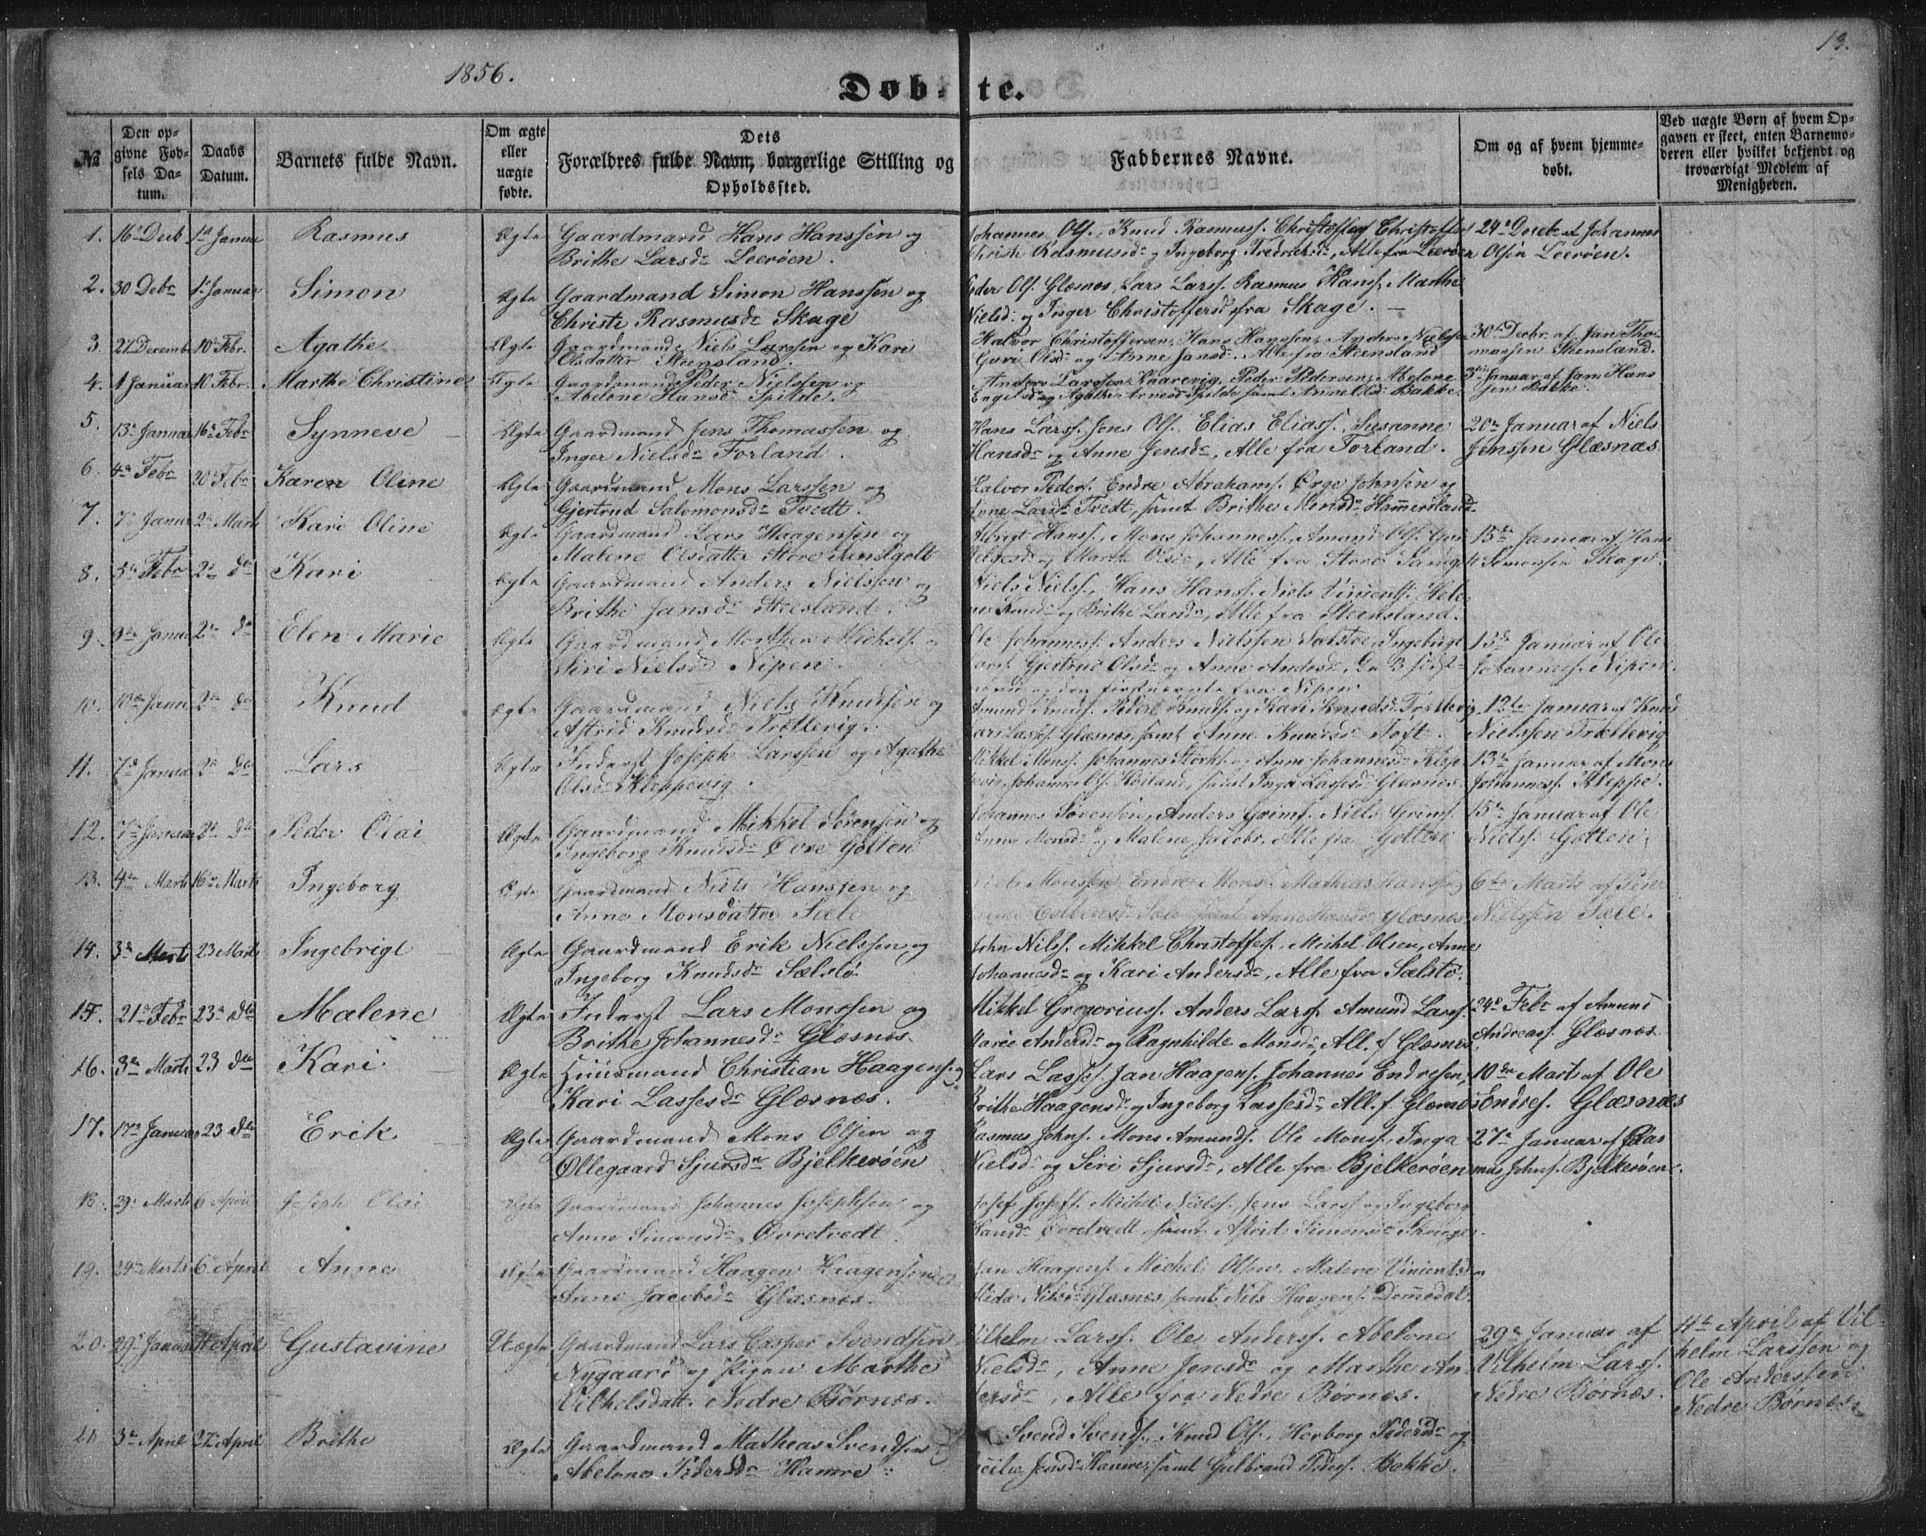 1856.
Døb-te.
13.
№
Den opgivne Fødsels Datum.
Daabs Datum.
Barnets fulde Navn.
Om ægte eller uægte fødte.
Dets Forældres fulde Navn, borgerlige Stilling og Opholdssted.
Faddernes Navne.
Om og af hvem hjemmedøbt.
Ved uægte Børn af hvem Opgaven er skeet, enten Barnemoderen eller hvilket bekjendt og troværdigt Medlem af Menigheden.
1. 16 Decb 1 Januar Rasmus Ægte Gaardmand Hans Hanssen og
Brithe Larsd. Leerøen.
Johannes Ols., Knud Rasmuss. Christoffer
Rasmusd. og Ingeborg Alle fra Leerøen
24 Decbr af Johannes
Olsen Leerøen.
2. 30 Debr 1 Januar Simon Ægte Gaardmand Simon Hanssen og
Christi Rasmusd. Skage
Peder Ols. Glæsnes, Lars Larss. Rasmus Hans. Marthe
Nielsd. og Inger Christoffersd. fra Skage.
3. 21 Decemb 10 Febr. Agathe Ægte Gaardmand Niels Larssen og Kari
Olsdatter Steensland.
Halvor Christoffersen, Hans Hanssen, Anders Nielsen
Guri Olsd. og Anne Jansd. Alle fra Steensland
30 Decbr. af Jan Tho-
massen Steensland.
4. 1 Januar 10 Febr. Marthe Christine Ægte Gaardmand Peder Nielssen og
Abelone Hansd. Spilde.
Anders Larssen Kaarevig, Peder Pedersen, Abelone
Engelsd. og Agathe Arnesd. Spilde samt Anne Olsd. Bakke.
3 Januar af Jan Hans
sen Bakke.
5. 13 Januar 16 Febr Synneve Ægte Gaardmand Jens Thomassen og
Inger Nielsd. Forland.
Hans Larss. Jens Ols. Elias Eliass. Susanne
Hansd. og Anne Jensd., Alle fra Forland.
20 Januar af Niels
Jenssen Glæsnæs
6. 4 Febr 20 Febr Karen Oline Ægte Gaardmand Mons Larssen og
Gjertrud Salomonsd. Tvedt.
Halvor Peders. Endre Abrahams. Ørge Johnsen og
Anne Larsd. Tvedt, samt Brithe Monsd. Hammersland
7. 7 Januar 2 Marts Kari Oline Ægte Gaardmand Lars Haagensen og
Malene Olsdatter Store
Hans., Mons Johanness. Amund Ols.
og Marthe Olsd., Alle fra Store
15de Januar af Hans
Simonsen Skage.
8. 5 Febr 2 do Kari Ægte Gaardmand Anders Nielssen og
Brithe Jansd. Steesland.
Niels Niels., Hans Hans. Niels
Knudsd. og Brithe Larsd., Alle fra Steensland.
9. 9 Januar 2 do Elen Marie Ægte Gaardmand Morthen Michels. og
Siri Nielsd. Nipen.
Ole Johanness. Anders Nielssen Sælstø, Ingebrigt
Gjertrud Olsd. og Anne Andersd.
fra Nipen
13de Januar af Ole
Johanness. Nipen.
10. 10 Januar 2 do Knud Ægte Gaardmand Niels Knudsen og
Astrid Knudsd. Trættevig.
Amund Knuds. Peder Knuds. og Kari Knudsd. Trættevig
Lass. Glæsnes, samt Anne Knudsd. Toft.
12te Januar af Knud
Nielssen Trættevig
11. 7 Januar 2 do Lars Ægte Inderst Joseph Larssen og Agathe
Olsd. Kleppevig.
Mikkel Mons. Johannes og Anne Johannesd. Klep
pevig, Johannes Ols. Høiland, samt Inga Lassesd. Glæsnes.
13 Januar af Mons
Johanness. Kleppe.
12. 7 Januar 2 do Peder Olai Ægte Gaardmand Mikkel Sørensen og
Ingeborg Knudsd. Øvre Gotten
Johannes Sørensen, Anders Grims. Niels Grims.
Anne Monsd. og Malene Jacobs. Alle fra Gotten
15 Januar af Ole
Niels. Gotten.
13. 4 Marts 16 Marts Ingeborg Ægte Gaardmand Niels Hanssen og
Anne Monsdatter Sæle
Niels Monssen Endre Mons. Mathias Hans.
Sæle samt Anne Hansd. Glæsnes
6te Marts af Peder
Nielssen Sæle.
14. 3 Marts 23 Marts Ingebrigt Ægte Gaardmand Erik Nielssen og
Ingeborg Knudsd. Sælstø.
John Nils. Mikkel Christoffers. Michel Olsen, Anne
Johannesd. og Kari Andersd., Alle fra Sælstø.
15. 21 Febr 23 do Malene Ægte Inderst Lars Monssen og
Brithe Johannesd. Glæsnes.
Mikkel Gregoriuss. Anders Lars. Amund Lars.
Marie Andersd. og Ragnhilde Monsd., All. f. Glæsnes.
24 Febr af Amund
Andreass. Glæsnes.
16. 3 Marts 23 do Kari Ægte Huusmand Christian Haagens. og
Kari Lassesd. Glæsnæs.
Lars Lass. Jan Haagens. Johannes Endresen,
Brithe Haagensd. og Ingeborg Lassesd., All. f. Glæsnæs
10de Marts af Ole
Endres. Glæsnæs
17. 17 Januar 23 do Erik Ægte Gaardmand Mons Olsen og
Øllegaard Sjursd. Bjelkerøen
Rasmus Johns. Mons Amunds. Ole Mons. Inga
Nielsd. og Seri Sjursd., Alle fra Bjelkerøen
27 Januar af Ras
mus Johns. Bjelkerøen.
18. 29 Marts 6 April Joseph Olai Ægte Gaardmand Johannes Josephsen og
Anne Simonsd. Tvedt.
Josef Josefs. Michel Niels. Jens Lars. og Ingeborg
Hansd. samt Astrid Simonsd. Skage
19. 24 Marts 6 April Anna Ægte Gaardmand Haagen Haagensen og
Anne Jacobsd. Glæsnes.
Jan Haagens. Michel Olsen. Malene
Nilsd. Glæsnes samt Nils Haagens. Dommedal
20. 29 Januar April Gustavine Uægte Gaardmand Lars Casper Svendsen
Nygaard og Pigen Marthe
Vilhelsdatt. Nedre Børnes.
Vilhelm Lars. Ole Anders. Abelone
Nielsd., Anne Jensd. og Marthe An
dersd., Alle fra Nedre Børnes.
29 Januar af
Vilhelm Lars.
Nedre Børnæs.
11te April af Vil-
helm Larssen og
Ole Anderssen
Nedre Børnæs
21. 3 April 27 April Brithe Ægte Gaardmand Mathias Svendsen
Abelone Pedersd. Hamre.
Svend Svends. Knud Ols., Herborg Pedersd. og
Jensd. Hamre, samt Gulbrand Peders. Bakke.